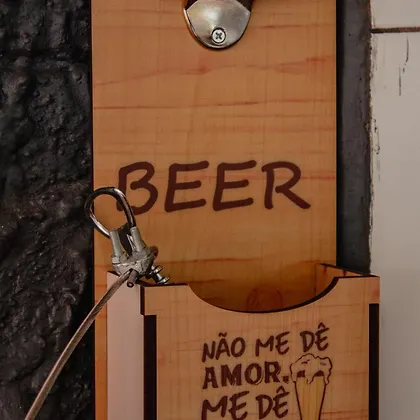 BEER
NÃO ME DÊ
AMOR.
ME DÊ